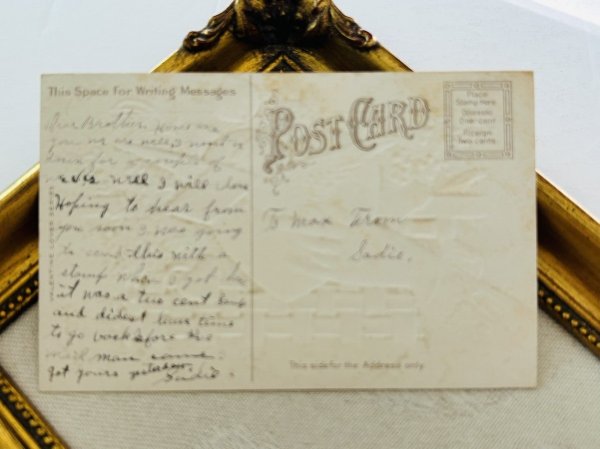 This Space For Writing Messages
Dear Brother
you
for
well I will close
Hoping to hear from
you soon I was going
to send this with a
stamp when I got here
it was a two cent
and didest have time
to go back before the
mail man came.
got yours
Sadie.
VALENTINE LOVER SERIES
POST CARD
Place
Stamp Here
Domestic
One cent
Foreign
Two cents
To max From
Sadie.
This side for the Address only.